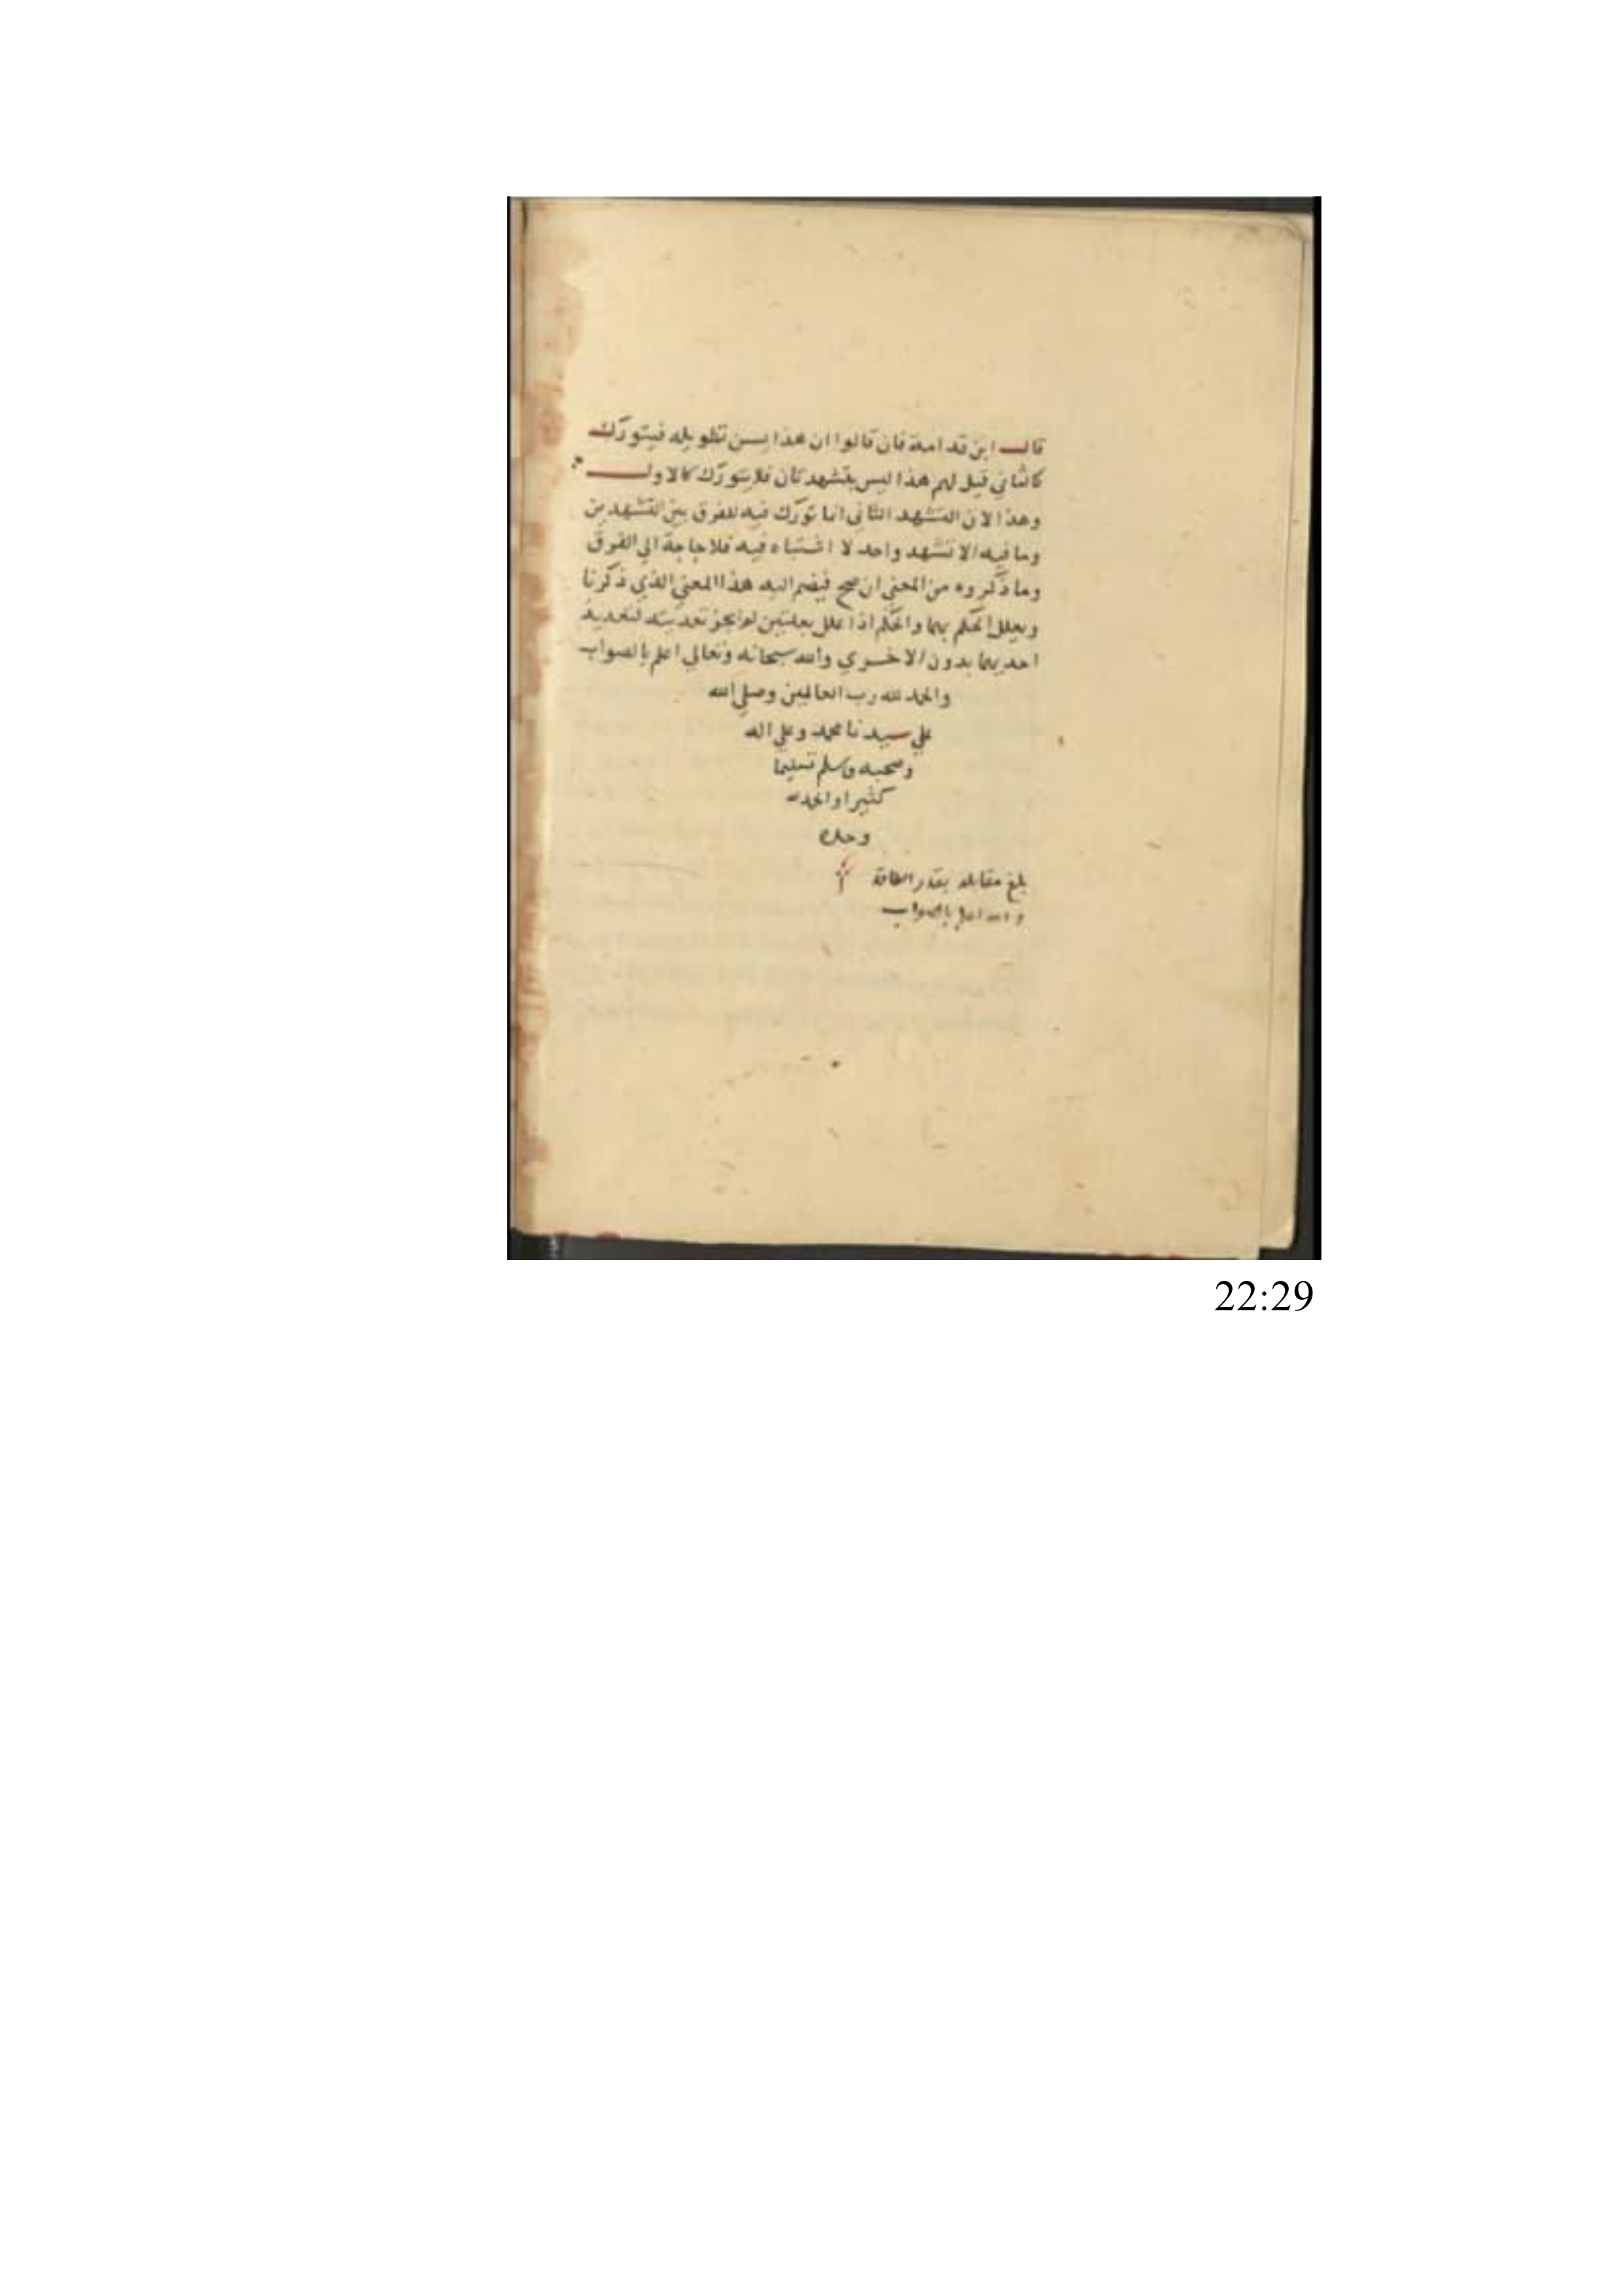 قال ابن قدامة فان قالوا ان هذا يسن تطويله فيتورك
كالثاني قيل لهم هذا ليس بتشهد ثان فلا يتورك كالاول
وهذا لان التشهد الثاني انما تورك فيه للفرق بين التشهدين
وما فيه الا تشهد واحد لا اشتباه فيه فلا حاجة الي الفرق
وما ذكروه من المعني ان صح فيضم اليه هذا المعني الذي ذكرنا
ويعلل الحكم بهما والحكم اذا علل بعلتين لم يجز تعديته لتعدية
احديهما بدون الاخري والله سبحانه وتعالي اعلم بالصواب
والحمد لله رب العالمين وصلي الله
علي سيدنا محمد وعلي اله
وصحبه وسلم تسليما
كثيرا والحمد لله
وحده
بلغ مقابلة بقدر الطاقة
والله اعلم بالصواب
22:29